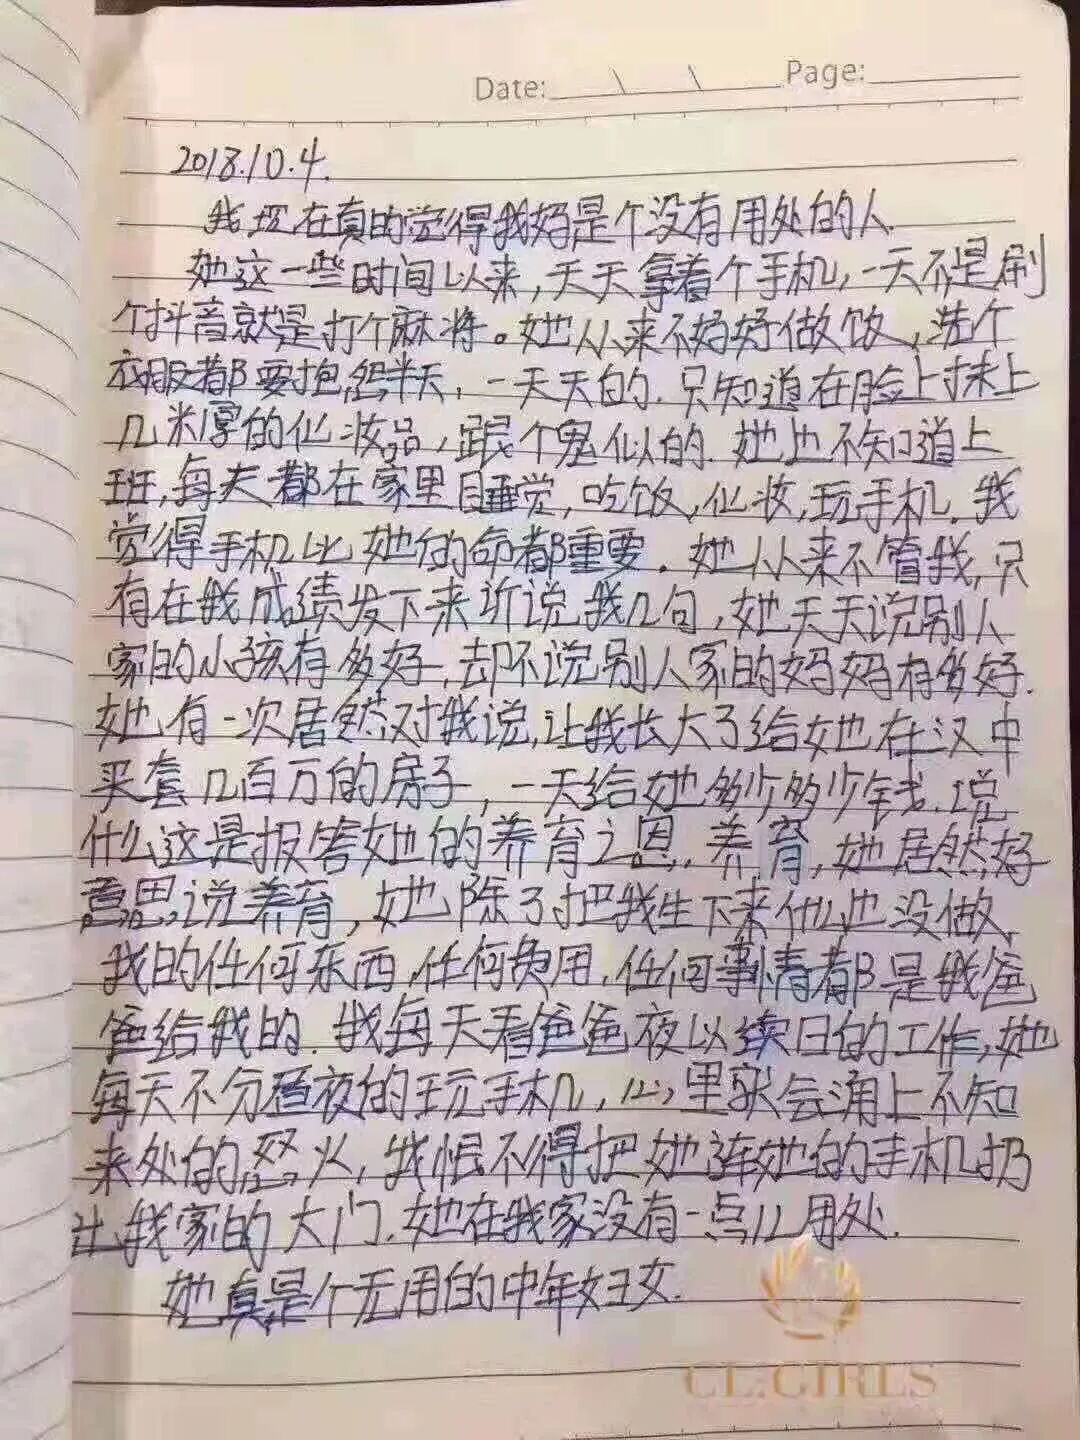 Date: \ \ Page:
2018.10.4.
我现在真的觉得我妈是个没有用处的人.
她这一些时间以来,天天拿着个手机,一天不是刷
个抖音就是打个麻将。她从来不好好做饭,洗个
衣服都要抱怨半天,一天天的.只知道在脸上抹上
几米厚的化妆品,跟个鬼似的.她也不知道上
班,每天都在家里睡觉,吃饭,化妆,玩手机.我
觉得手机比她的命都重要.她从来不管我,只
有在我成绩发下来所说我几句,她天天说别人
家的小孩有多好,却不说别人家的妈妈有多好.
她有一次居然对我说,让我长大了给她在汉中
买套几百万的房子,一天给她多少多少钱.说
什么这是报答她的养育之恩.养育,她居然好
意思说养育,她除了把我生下来什么也没做.
我的任何东西,任何费用,任何事情都是我爸
爸给我的.我每天看爸爸夜以续日的工作,她
每天不分昼夜的玩手机,心里就会涌上不知
来处的怒火,我恨不得把她连她的手机扔
出我家的大门.她在我家没有一点儿用处.
她真是个无用的中年妇女.
CL:GIRLS